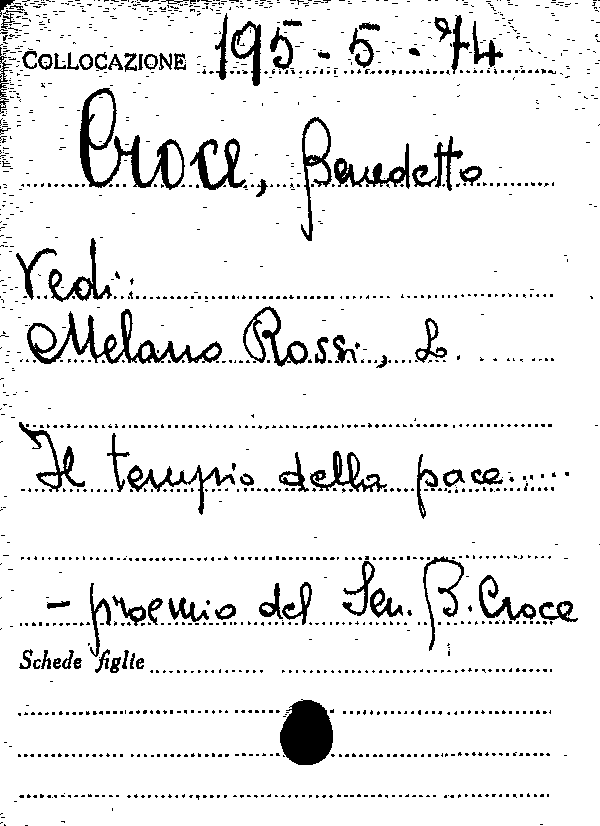 COLLOCAZIONE 195-5-74
Croce, Benedetto
Vedi:
Melano Rossi, L.
Il tempio della pace.....
- proemio del Sen. B. Croce
Schede figlie